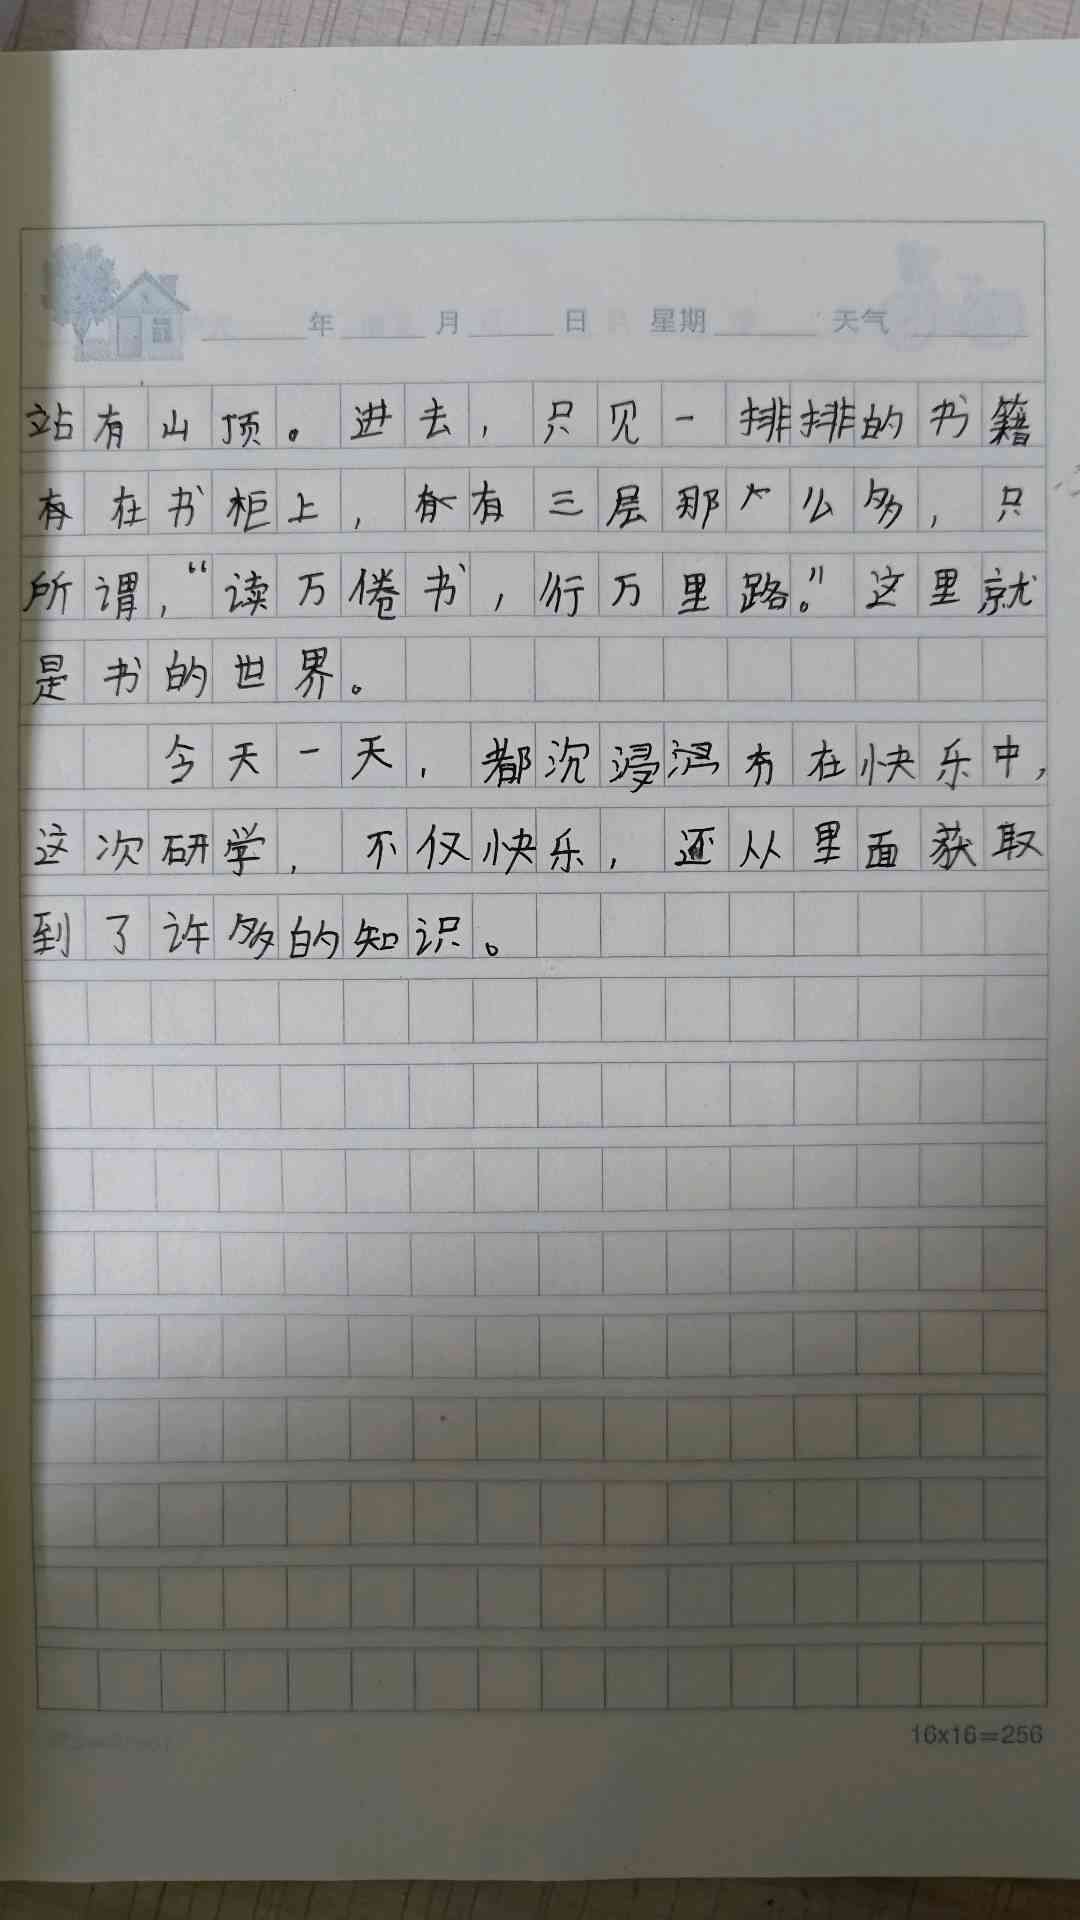 年 月 日 星期 天气
站有山顶。进去,只见一排排的书籍
有在书柜上,有三层那么多,只
所谓,“读万倦书,行万里路。”这里就
是书的世界。
今天一天,都沉浸在快乐中,
这次研学,不仅快乐,还从里面获取
到了许多的知识。
16x16=256